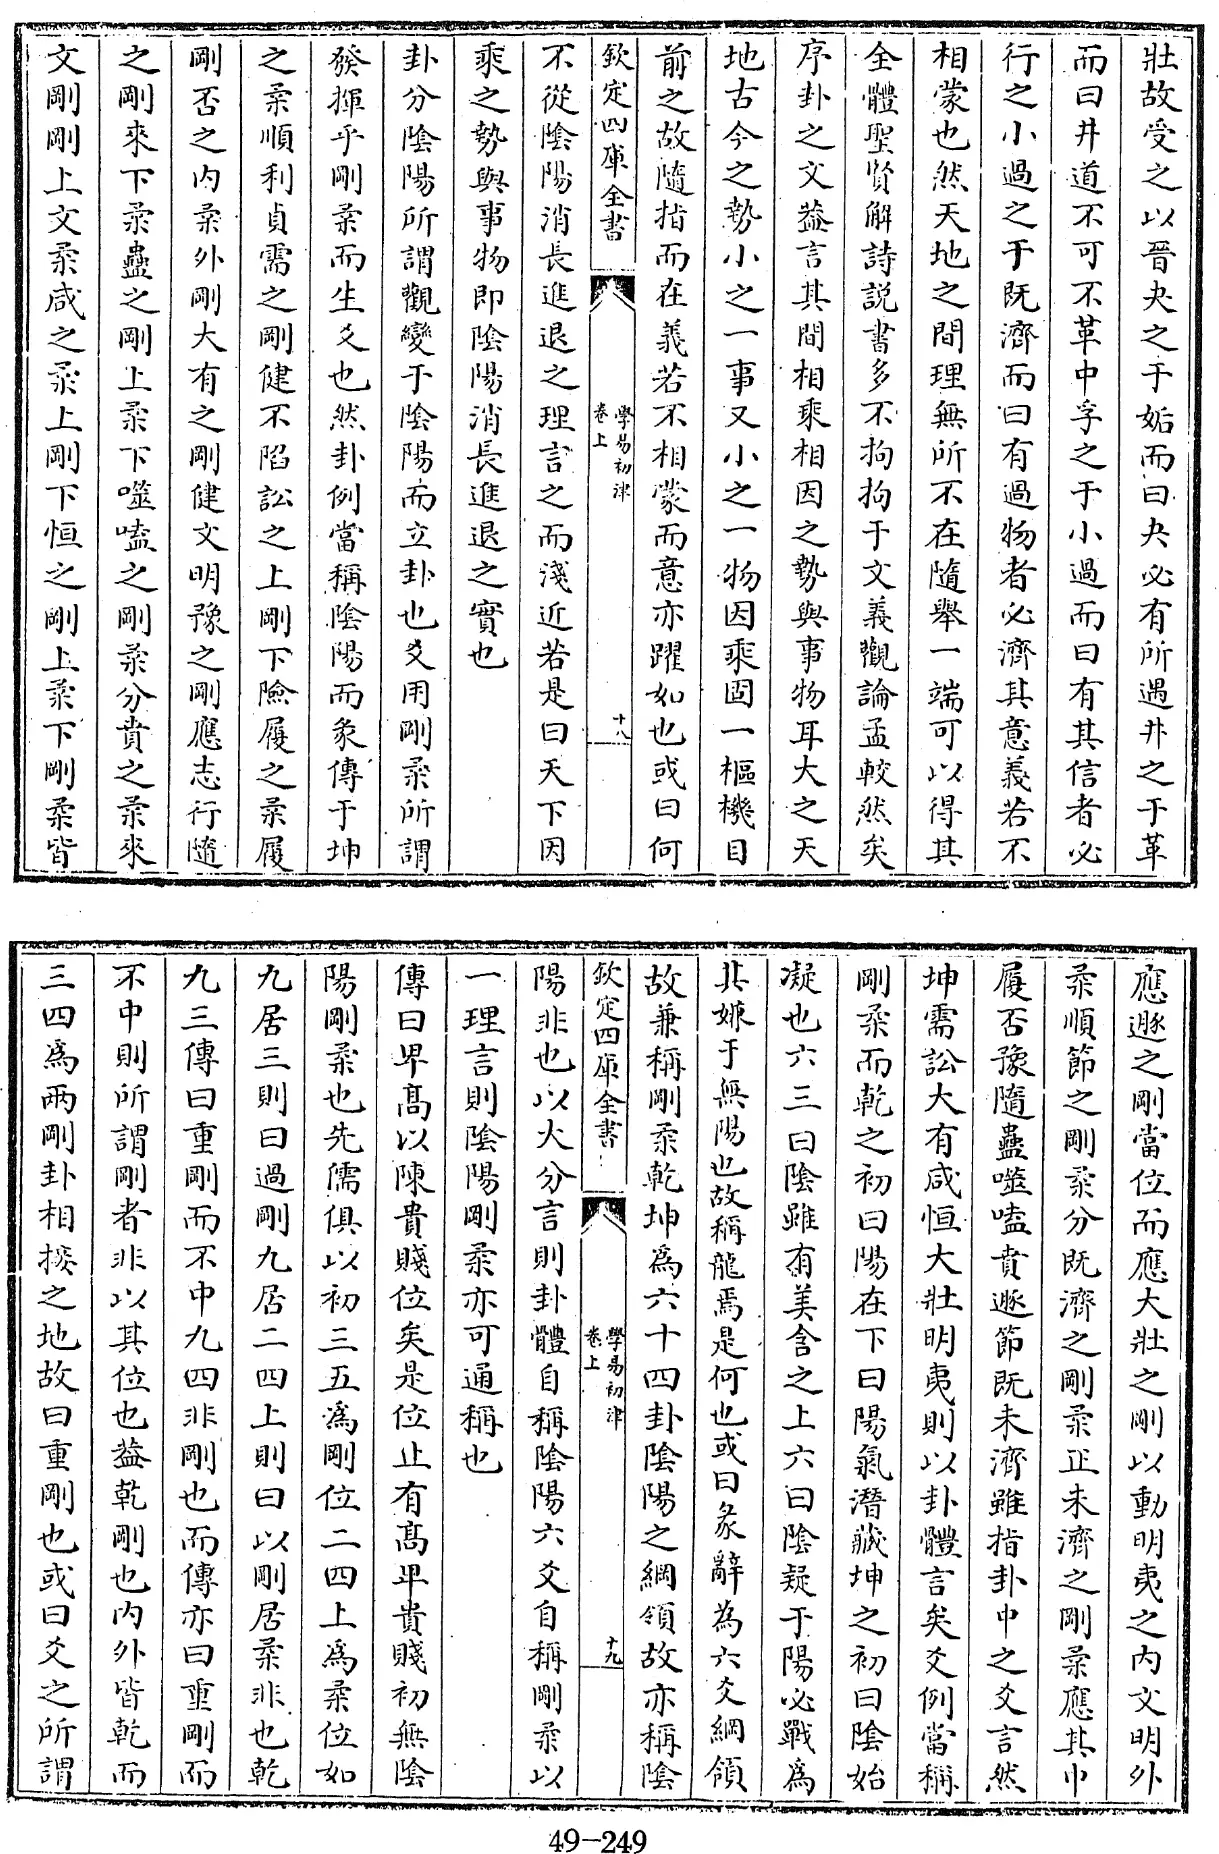 壯故受之以晉夬之于姤而曰夬必有所遇井之于革
而曰井道不可不革中孚之于小過而曰有其信者必
行之小過之于既濟而曰有過物者必濟其意義若不
相蒙也然天地之間理無所不在隨舉一端可以得其
全體聖賢解詩説書多不拘拘于文義觀論孟較然矣
序卦之文葢言其間相乘相因之勢與事物耳大之天
地古今之勢小之一事又小之一物因乘固一樞機目
前之故隨指而在義若不相蒙而意亦躍如也或曰何
欽定四庫全書
學易初津
卷上
十八
不從陰陽消長進退之理言之而淺近若是曰天下因
乘之勢與事物即陰陽消長進退之實也
卦分陰陽所謂觀變于陰陽而立卦也爻用剛柔所謂
發揮乎剛柔而生爻也然卦例當稱陰陽而彖傳于坤
之柔順利貞需之剛健不陷訟之上剛下險履之柔履
剛否之内柔外剛大有之剛健文明豫之剛應志行隨
之剛來下柔蠱之剛上柔下噬嗑之剛柔分賁之柔來
文剛剛上文柔咸之柔上剛下恒之剛上柔下剛柔皆
應遯之剛當位而應大壯之剛以動明夷之内文明外
柔順節之剛柔分既濟之剛柔正未濟之剛柔應其中
履否豫隨蠱噬嗑賁遯節既未濟雖指卦中之爻言然
坤需訟大有咸恒大壯明夷則以卦體言矣爻例當稱
剛柔而乾之初曰陽在下曰陽氣潛藏坤之初曰陰始
凝也六三曰陰雖有美含之上六曰陰疑于陽必戰為
其嫌于無陽也故稱龍焉是何也或曰彖辭為六爻綱領
故兼稱剛柔乾坤為六十四卦陰陽之綱領故亦稱陰
欽定四庫全書
學易初津
卷上
十九
陽非也以大分言則卦體自稱陰陽六爻自稱剛柔以
一理言則陰陽剛柔亦可通稱也
傳曰卑高以陳貴賤位矣是位止有高卑貴賤初無陰
陽剛柔也先儒俱以初三五為剛位二四上為柔位如
九居三則曰過剛九居二四上則曰以剛居柔非也乾
九三傳曰重剛而不中九四非剛也而傳亦曰重剛而
不中則所謂剛者非以其位也葢乾剛也内外皆乾而
三四為兩剛卦相接之地故曰重剛也或曰爻之所謂
49-249